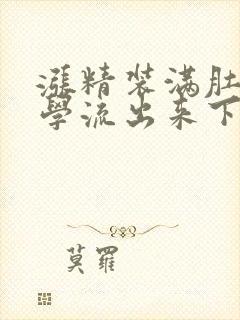 漲精装满肚
學流出来下
莫羅